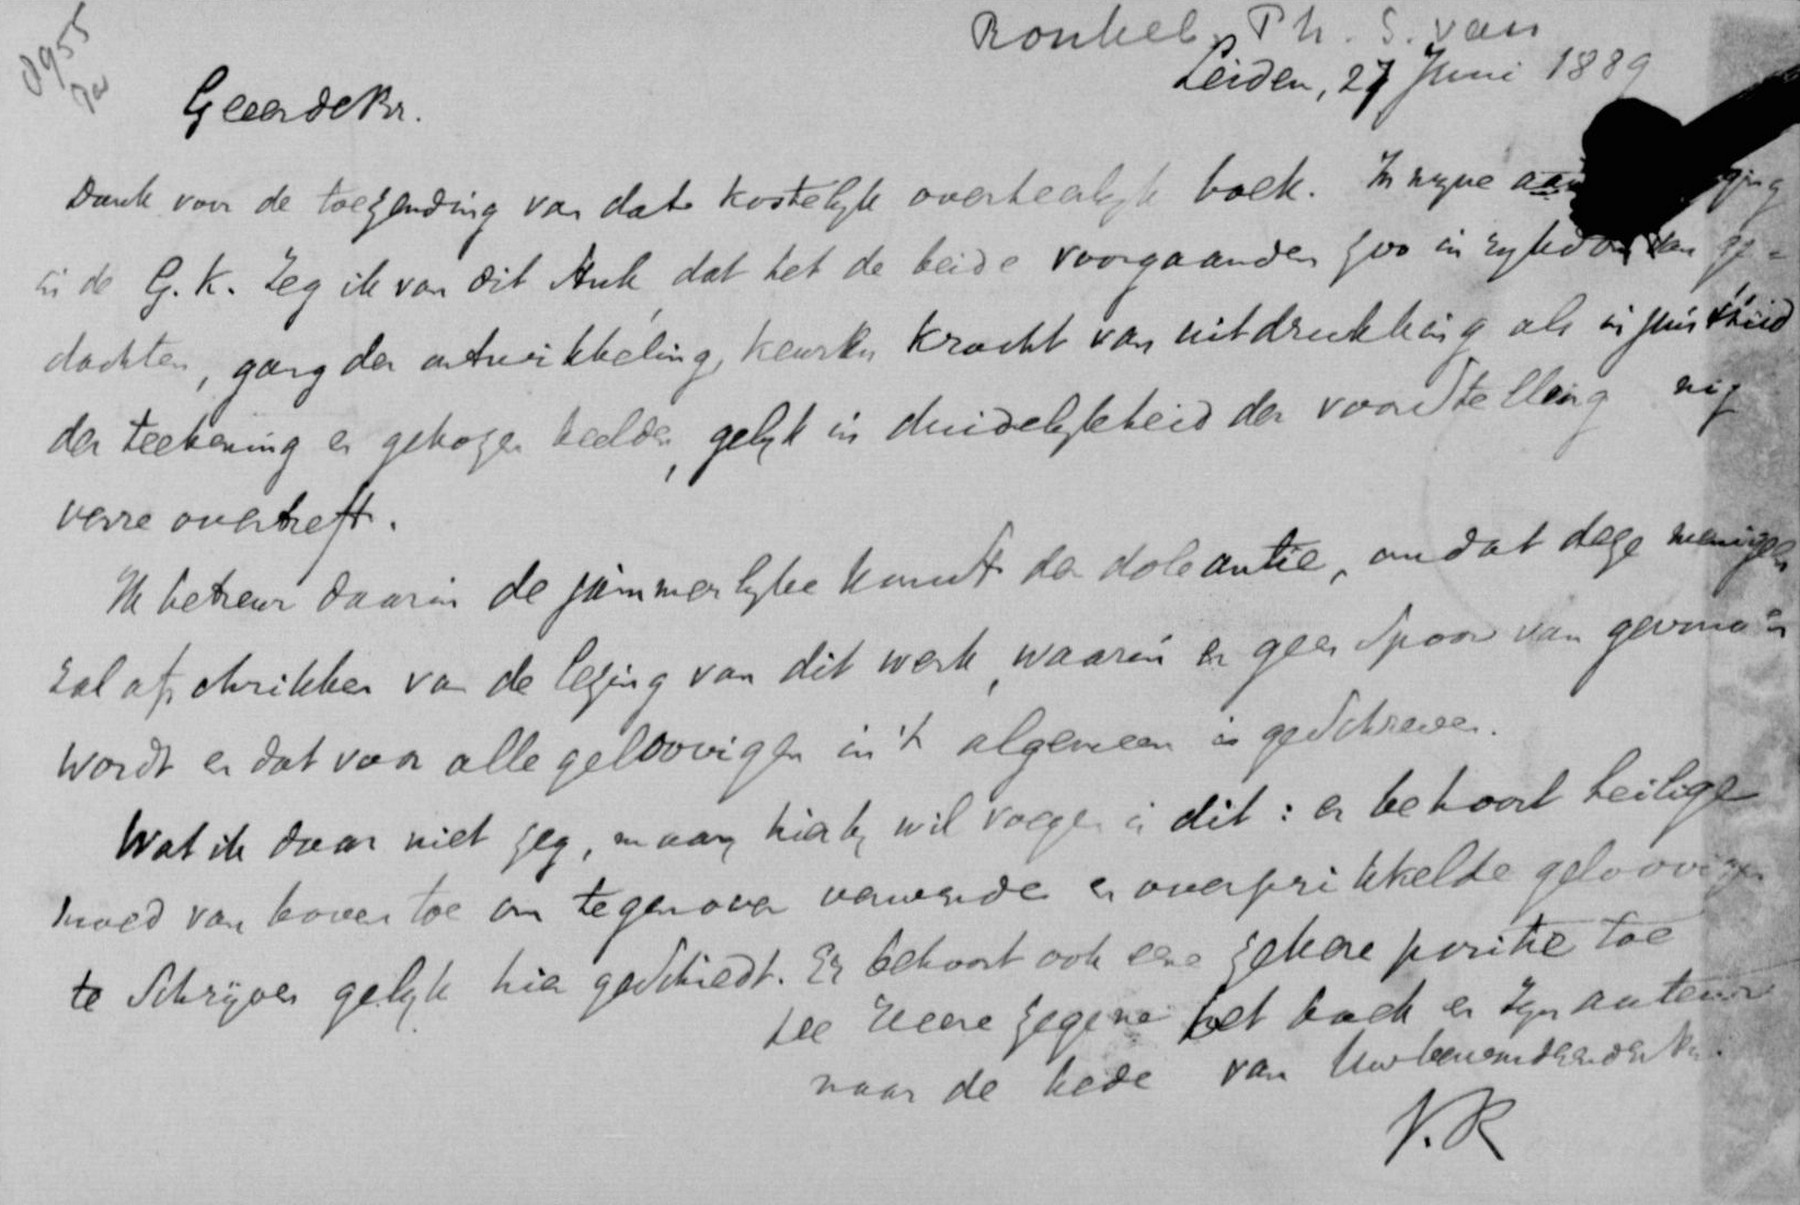 Ronkel, Ph. S. van
Leiden, 27 Juni 1889
Geeerde Br.
Dank voor de toezending van dat kostelyk overheerlyk boek. In myne
in de G. K. zeg ik van dit stuk, dat het de beide voorgaanden zoo in rykdom van ge-
dachten, gang der ontwikkeling, keur en kracht van uitdrukking als in juistheid
der teekening en gekozen beelden, gelyk in duidelykheid der voorstelling
verre overtreft.
Ik betreur daarin de jammerlyke komst der doleantie, omdat deze menigeen
zal afschrikken van de lezing van dit werk, waarin er geen spoor van
wordt en dat voor alle geloovigen in 't algemeen is geschreven.
Wat ik daar niet zeg, maar hierby wil voegen is dit: er behoort heilige
moed van boven toe om tegenover verwende en overprikkelde geloovigen
te schryven gelyk hier geschiedt. Er behoort ook eene zekere positie toe
De Heere zegene het boek en zyn auteur
naar de bede van Uw bewonderenden Br.
V. R